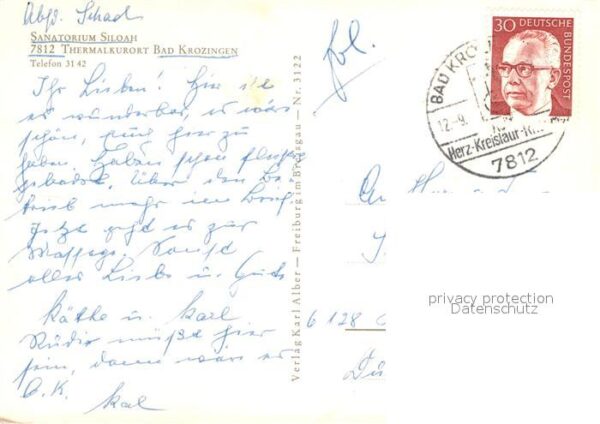 Abs. Schad
SANATORIUM SILOAH
7812 THERMALKURORT BAD KROZINGEN
Telefon 31 42
Ihr Lieben! Hier ist
es wunderbar, es wäre
schön, euch hier zu
haben. Haben schon fleißig
gebadet, über den Be-
trieb mehr im Brief
Jetzt geht es zur
Massage. Sonst
alles Liebe u. Gute
Käthe u. Karl
Rudi müßt hier
sein, dann wäre er
O.K.
Kal
Verlag Karl Alber — Freiburg im Breisgau — Nr. 3122
fbl.
30 DEUTSCHE BUNDESPOST
BAD KRO
12.-9.
Herz-Kreislauf-
7812
6128
privacy protection
Datenschutz